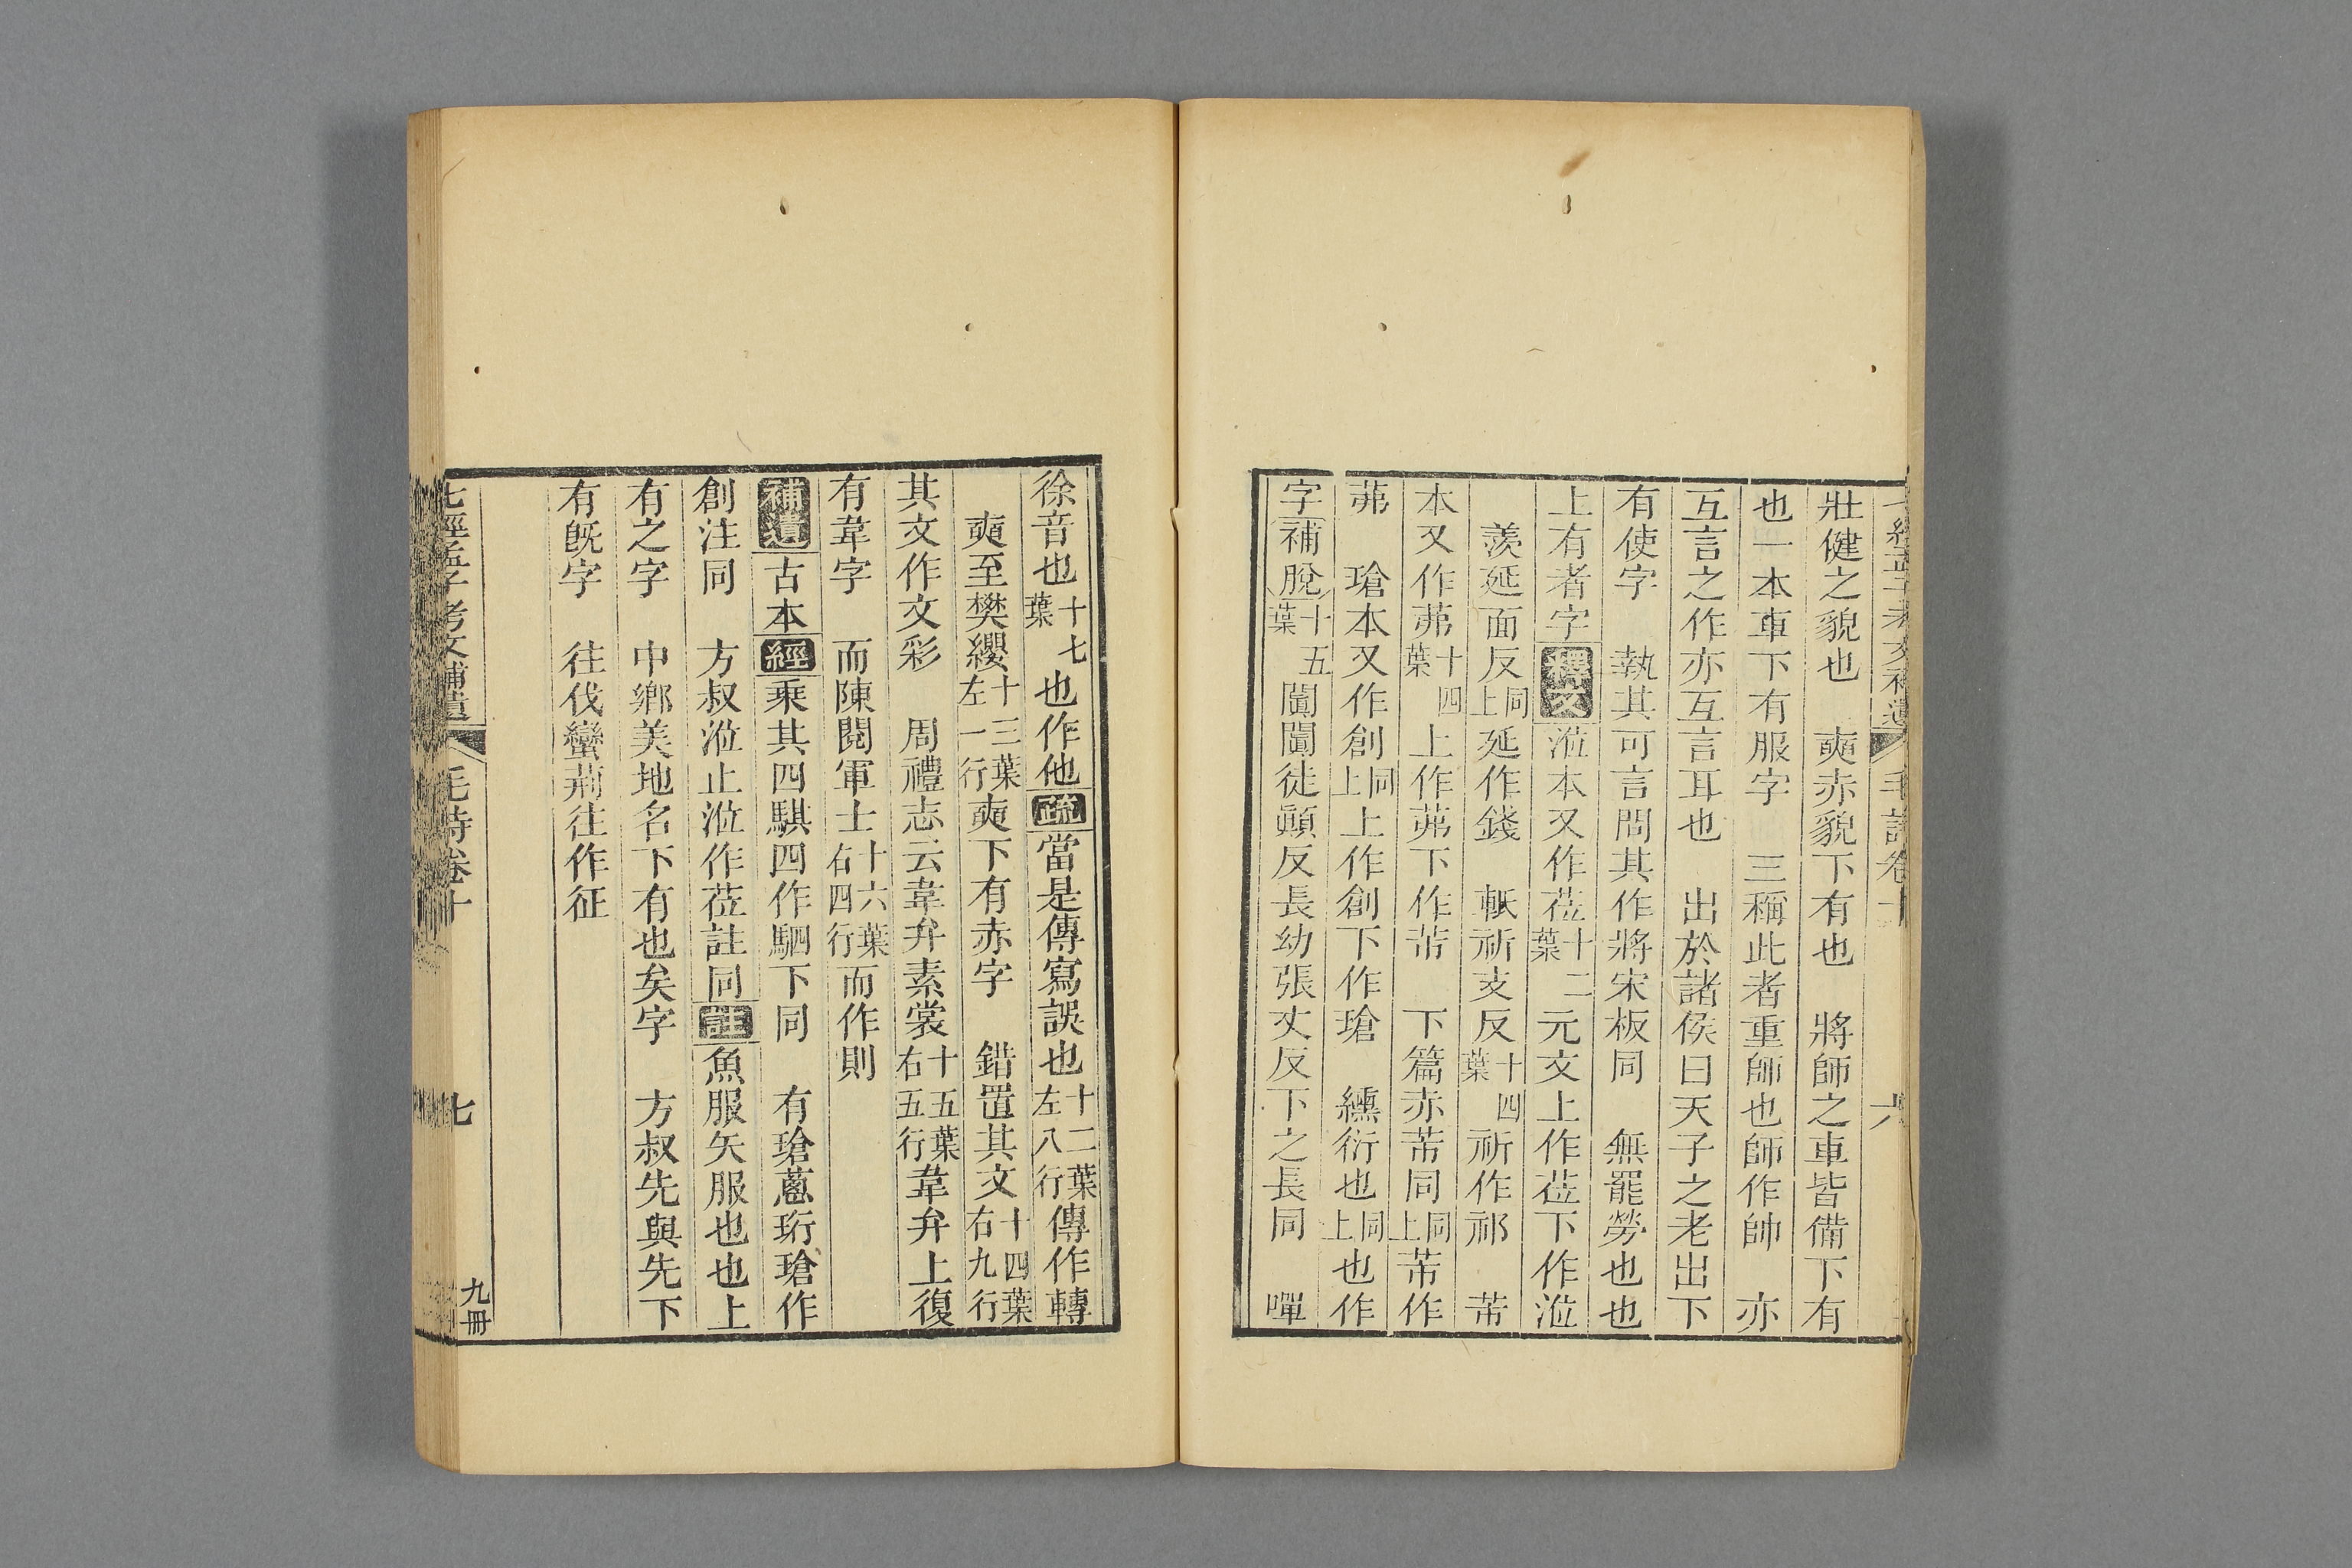 壯健之貌也　奭赤貌下有也　將師之車皆備下有
也一本車下有服字　三稱此者重師也師作帥　亦
互言之作亦互言耳也　出於諸侯曰天子之老出下
有使字　執其可言問其作將宋板同　無罷勞也也
上有者字釋文涖本又作莅十二葉元文上作莅下作涖
羨延面反同上延作錢　軝祈支反十四葉祈作祁　芾
本又作茀十四葉上作茀下作芾　下篇赤芾同同上芾作
茀　瑲本又作創同上上作創下作瑲　纁衍也同上也作
字補脫十五葉闐闐徒顚反長幼張丈反下之長同　嘽
徐音也十七葉也作他疏當是傳寫誤也十二葉左八行傳作轉
奭至樊纓十三葉左一行奭下有赤字　錯置其文十四葉右九行
其文作文彩　周禮志云韋弁素裳十五葉右五行韋弁上復
有韋字　而陳閱軍士十六葉右四行而作則
補遺古本經乗其四騏四作駟下同　有瑲蔥珩瑲作
創注同　方叔涖止涖作莅註同註魚服矢服也也上
有之字　中鄉美地名下有也矣字　方叔先與先下
有旣字　往伐蠻荊往作征
七經孟子考文補遺　毛詩卷十　七　九冊